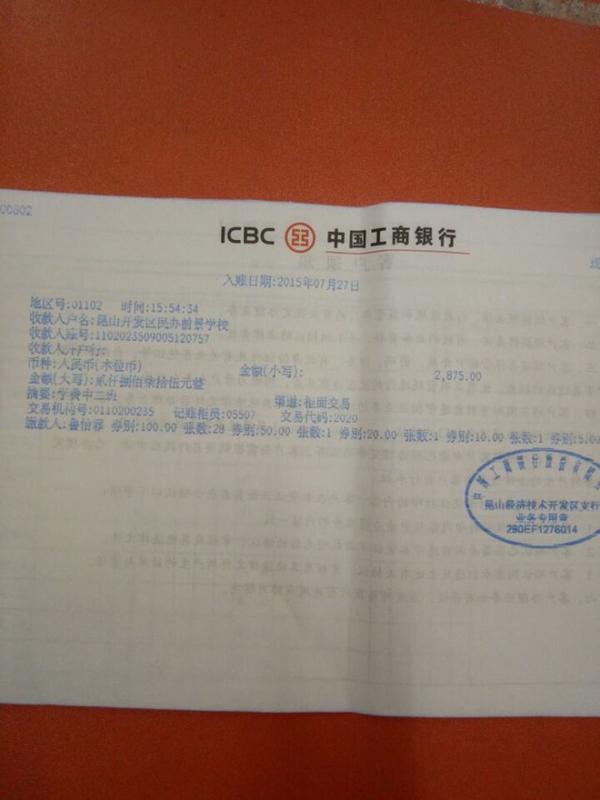 00802
ICBC 中国工商银行
入账日期:2015年07月27日
地区号:01102 时间:15:54:34
收款人户名:昆山开发区民办前景学校
收款人账号:1102023509005120757
收款人开户行:
币种:人民币(本位币) 金额(小写): 2,875.00
金额(大写):贰仟捌佰柒拾伍元整
摘要:学费中二班 渠道:柜面交易
交易机构号:0110200235 记账柜员:05507 交易代码:2020
缴款人:鲁怡霏 券别:100.00 张数:28 券别:50.00 张数:1 券别:20.00 张数:1 券别:10.00 张数:1 券别:5.00
中国工商银行股份有限公司
昆山经济技术开发区支行
业务专用章
290EF1276014